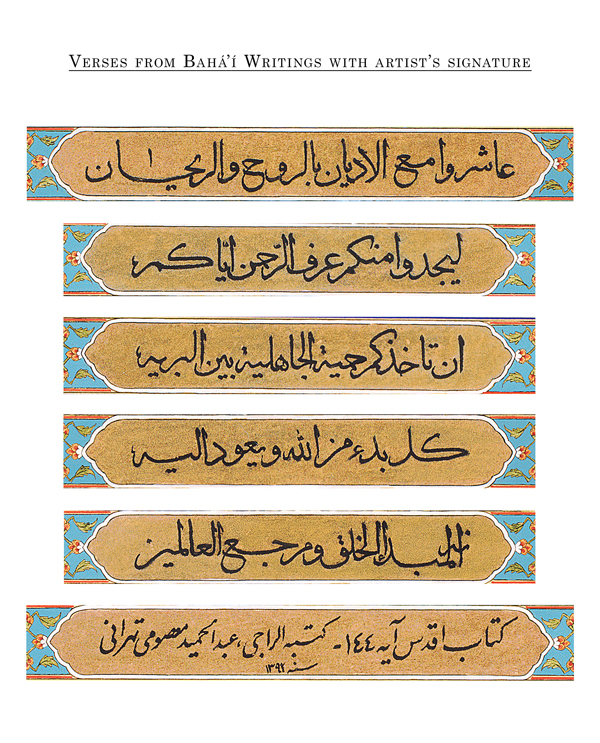 Verses from Bahá’í Writings with artist’s signature
عاشروا مع الاديان بالروح والريحان
ليجدوا منكم عرف الرّحمن ايّاكم
ان تاخذكم حمية الجاهلية بين البريه
كل بدء من الله ويعود اليه
انه لمبدء الخلق ومرجع العالمين
كتاب اقدس آيه ١٤٤ - كتبه الراجى، عبدالحميد معصومى تهرانى
سنه ۱۳۹۲